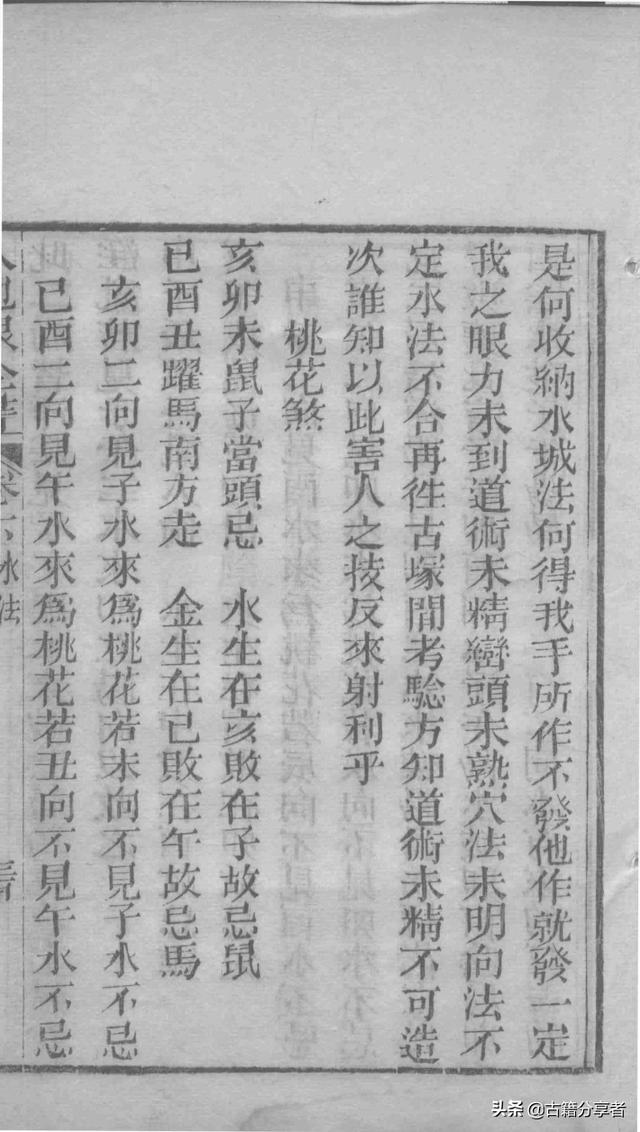 是何收納水城法何得我手所作不發他作就發一定
我之眼力未到道術未精巒頭未熟穴法未明向法不
定水法不合再徃古塚間考騐方知道術未精不可造
次誰知以此害人之技反來射利乎
桃花煞
亥卯未鼠子當頭忌　水生在亥敗在子故忌鼠
巳酉丑躍馬南方走　金生在巳敗在午故忌馬
亥卯二向見子水來爲桃花若未向不見子水不忌
巳酉二向見午水來爲桃花若丑向不見午水不忌
水法
头条 @古籍分享者